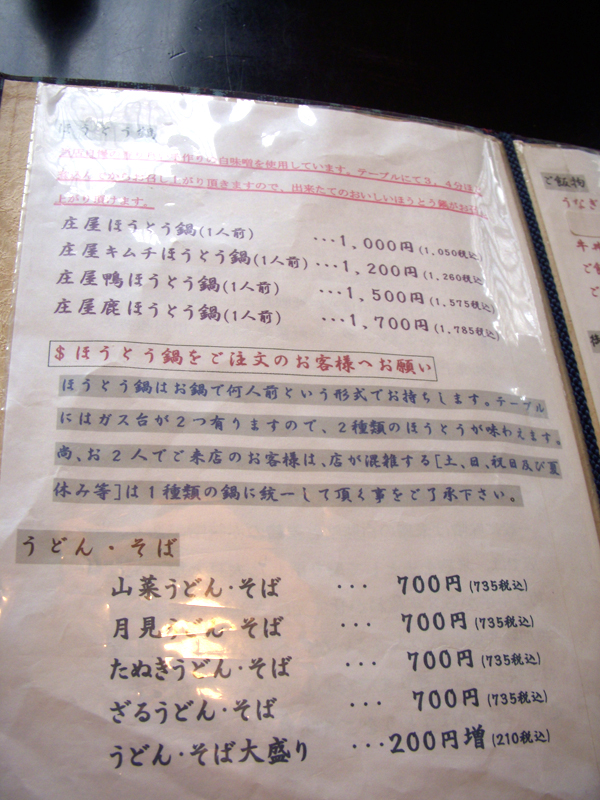 ほうとう鍋
作りの白味噌を使用しています。テーブルにて3,4分ほど
からお召し上がり頂きますので、出来たてのおいしいほうとう鍋が
上がり頂けます。
庄屋ほうとう鍋(1人前) ・・・1,000円(1,050税込)
庄屋キムチほうとう鍋(1人前) ・・・1,200円(1,260税込)
庄屋鴨ほうとう鍋(1人前) ・・・1,500円(1,575税込)
庄屋鹿ほうとう鍋(1人前) ・・・1,700円(1,785税込)
$ほうとう鍋をご注文のお客様へお願い
ほうとう鍋はお鍋で何人前という形式でお持ちします。テーブル
にはガス台が2つ有りますので、2種類のほうとうが味わえます。
尚、お2人でご来店のお客様は、店が混雑する[土、日、祝日及び夏
休み等]は1種類の鍋に統一して頂く事をご了承下さい。
うどん・そば
山菜うどん・そば ・・・ 700円(735税込)
月見うどん そば ・・・ 700円(735税込)
たぬきうどん・そば ・・・ 700円(735税込)
ざるうどん・そば ・・・ 700円(735税込)
うどん・そば大盛り ・・・200円増(210税込)
ご飯物
うなぎ
牛め
ご飯